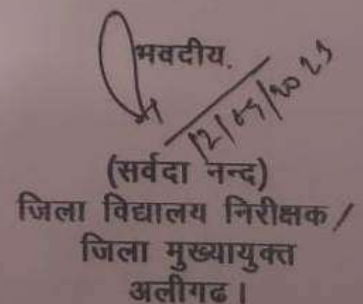 भवदीय.
12/05/2023
(सर्वदा नन्द)
जिला विद्यालय निरीक्षक/
जिला मुख्यायुक्त
अलीगढ।